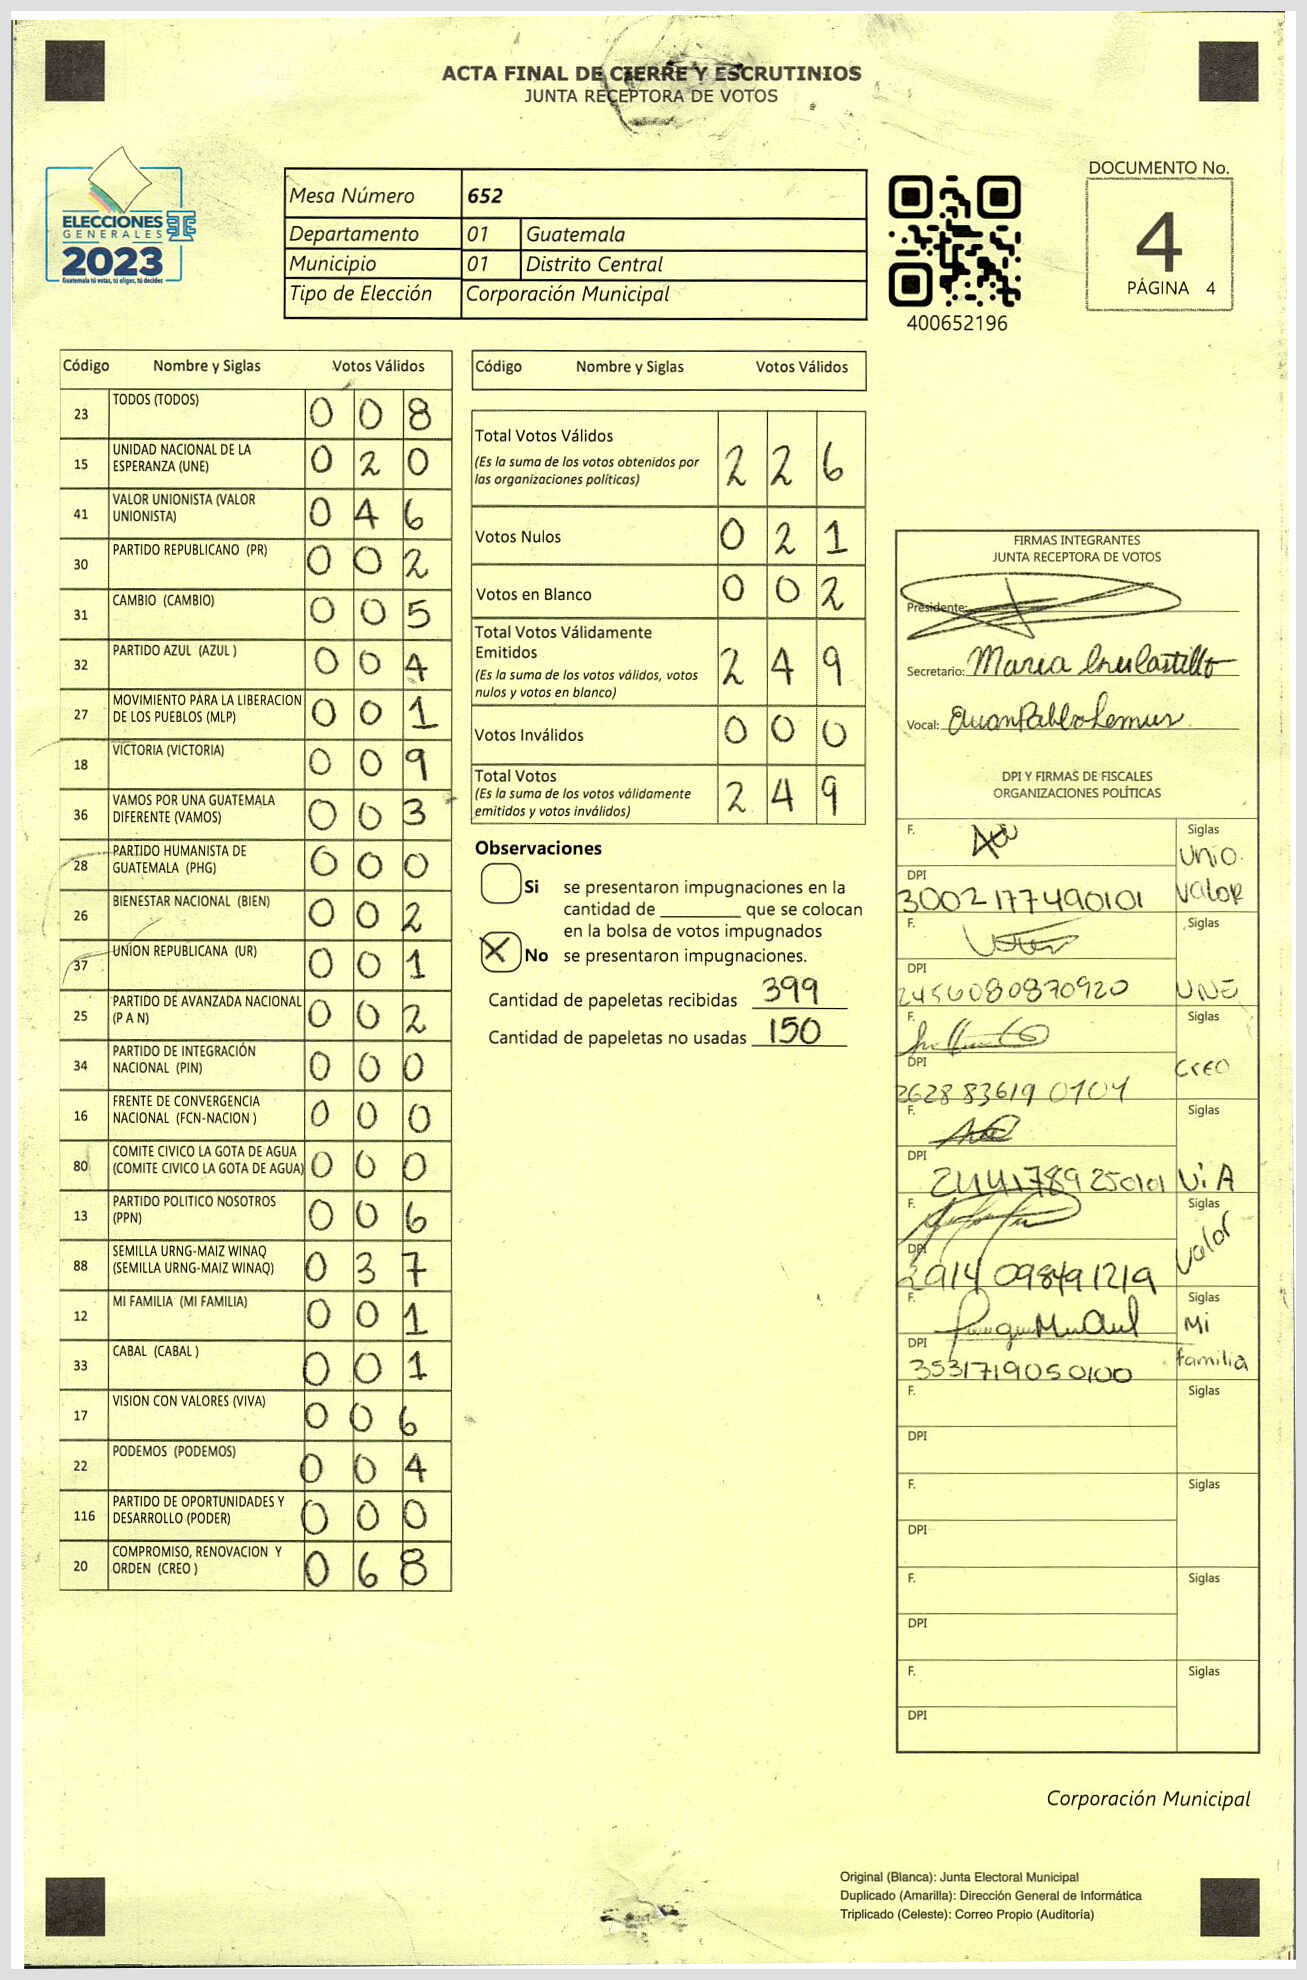 ACTA FINAL DE CIERRE Y ESCRUTINIOS
JUNTA RECEPTORA DE VOTOS
ELECCIONES
GENERALES
2023
Guatemala tú votas, tú eliges, tú decides
Mesa Número 652
Departamento 01 Guatemala
Municipio 01 Distrito Central
Tipo de Elección Corporación Municipal
400652196
DOCUMENTO No.
4
PÁGINA 4
Código Nombre y Siglas Votos Válidos
23 TODOS (TODOS) 0 0 8
15 UNIDAD NACIONAL DE LA
ESPERANZA (UNE) 0 2 0
41 VALOR UNIONISTA (VALOR
UNIONISTA) 0 4 6
30 PARTIDO REPUBLICANO (PR) 0 0 2
31 CAMBIO (CAMBIO) 0 0 5
32 PARTIDO AZUL (AZUL ) 0 0 4
27 MOVIMIENTO PARA LA LIBERACION
DE LOS PUEBLOS (MLP) 0 0 1
18 VICTORIA (VICTORIA) 0 0 9
36 VAMOS POR UNA GUATEMALA
DIFERENTE (VAMOS) 0 0 3
28 PARTIDO HUMANISTA DE
GUATEMALA (PHG) 0 0 0
26 BIENESTAR NACIONAL (BIEN) 0 0 2
37 UNION REPUBLICANA (UR) 0 0 1
25 PARTIDO DE AVANZADA NACIONAL
(P A N) 0 0 2
34 PARTIDO DE INTEGRACIÓN
NACIONAL (PIN) 0 0 0
16 FRENTE DE CONVERGENCIA
NACIONAL (FCN-NACION ) 0 0 0
80 COMITE CIVICO LA GOTA DE AGUA
(COMITE CIVICO LA GOTA DE AGUA) 0 0 0
13 PARTIDO POLITICO NOSOTROS
(PPN) 0 0 6
88 SEMILLA URNG-MAIZ WINAQ
(SEMILLA URNG-MAIZ WINAQ) 0 3 7
12 MI FAMILIA (MI FAMILIA) 0 0 1
33 CABAL (CABAL ) 0 0 1
17 VISION CON VALORES (VIVA) 0 0 6
22 PODEMOS (PODEMOS) 0 0 4
116 PARTIDO DE OPORTUNIDADES Y
DESARROLLO (PODER) 0 0 0
20 COMPROMISO, RENOVACION Y
ORDEN (CREO ) 0 6 8
Código Nombre y Siglas Votos Válidos
Total Votos Válidos
(Es la suma de los votos obtenidos por
las organizaciones políticas) 2 2 6
Votos Nulos 0 2 1
Votos en Blanco 0 0 2
Total Votos Válidamente
Emitidos
(Es la suma de los votos válidos, votos
nulos y votos en blanco) 2 4 9
Votos Inválidos 0 0 0
Total Votos
(Es la suma de los votos válidamente
emitidos y votos inválidos) 2 4 9
Observaciones
Si se presentaron impugnaciones en la
cantidad de ________ que se colocan
en la bolsa de votos impugnados
X No se presentaron impugnaciones.
Cantidad de papeletas recibidas 399
Cantidad de papeletas no usadas 150
FIRMAS INTEGRANTES
JUNTA RECEPTORA DE VOTOS
Presidente:
Secretario: Maria Castillo
Vocal: Juan Pablo Lemus
DPI Y FIRMAS DE FISCALES
ORGANIZACIONES POLÍTICAS
F. Siglas
Unio.
DPI
3002177490101 Valor
F. Siglas
DPI
2456080870920 UNE
F. Siglas
DPI CREO
2628836190101
F. Siglas
DPI
2141789250101 ViA
F. Siglas
DPI Valor
2914098491219
F. Siglas
Mi
DPI Familia
3531719050100
F. Siglas
DPI
F. Siglas
DPI
F. Siglas
DPI
F. Siglas
DPI
Corporación Municipal
Original (Blanca): Junta Electoral Municipal
Duplicado (Amarilla): Dirección General de Informática
Triplicado (Celeste): Correo Propio (Auditoría)